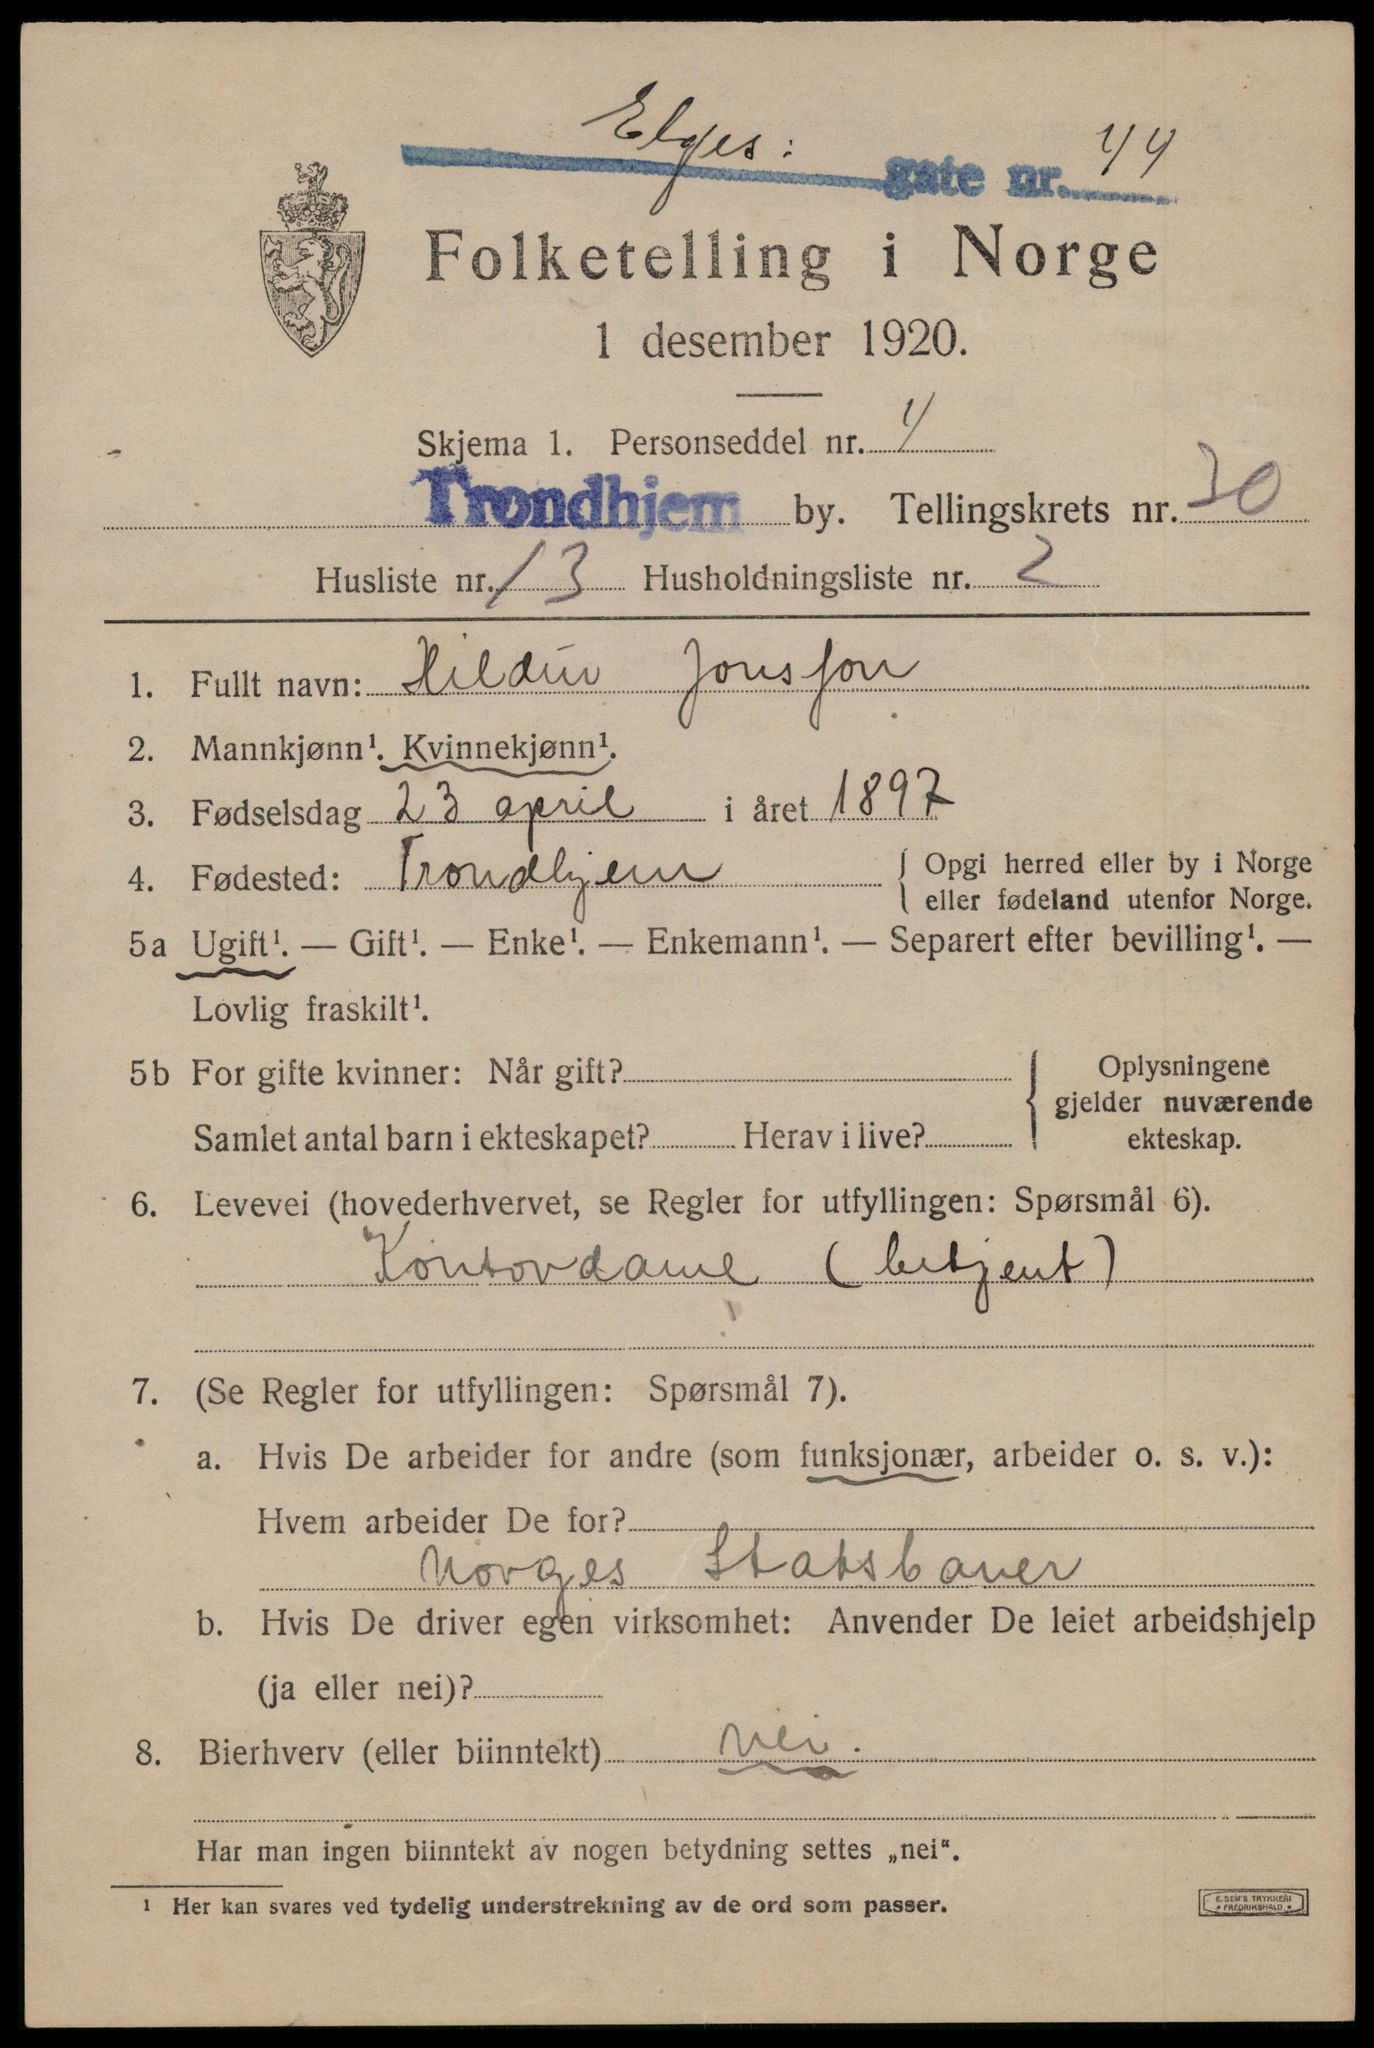 Elges: gate nr. 44
Folketelling i Norge
1 desember 1920.
Skjema 1. Personseddel nr. 4
Trondhjem by. Tellingskrets nr. 30
Husliste nr. 13 Husholdningsliste nr. 2
1. Fullt navn: Hildur Jonsson
2. Mannkjønn¹. Kvinnekjønn¹.
3. Fødselsdag 23 april i året 1897
4. Fødested: Trondhjem { Opgi herred eller by i Norge
eller fødeland utenfor Norge.
5a Ugift¹. — Gift¹. — Enke¹. — Enkemann¹. — Separert efter bevilling¹. —
Lovlig fraskilt¹.
5b For gifte kvinner: Når gift? { Oplysningene
gjelder nuværende
Samlet antal barn i ekteskapet? Herav i live? ekteskap.
6. Levevei (hovederhvervet, se Regler for utfyllingen: Spørsmål 6).
Kontordame (betjent)
7. (Se Regler for utfyllingen: Spørsmål 7).
a. Hvis De arbeider for andre (som funksjonær, arbeider o. s. v.):
Hvem arbeider De for?
Norges Statsbaner
b. Hvis De driver egen virksomhet: Anvender De leiet arbeidshjelp
(ja eller nei)?
8. Bierhverv (eller biinntekt) nei.
Har man ingen biinntekt av nogen betydning settes „nei“.
¹ Her kan svares ved tydelig understrekning av de ord som passer.
E. SEM'S TRYKKERI
* FREDRIKSHALD *